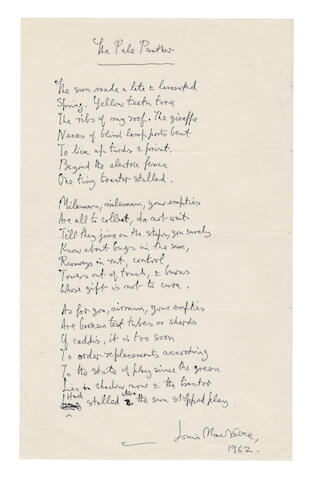 The Pale Panther
The sun made a late & lamented
Spring. Yellow teeth tore
The ribs of my roof. The giraffe
Necks of blind lampposts bent
To lick up turds & print,
Beyond the electric fence
One tiny tractor stalled.
Milkman, milkman, your empties
Are all to collect, do not wait
Till they jive on the steps, you surely
Know about bugs in the sun,
Runways in rut, control
Towers out of touch, & burns
Whose gift is not to cure.
As for you, airman, your empties
Are broken test tubes or shards
Of caddis, it is too soon
To order replacements according
To the state of play since the green
Lies in shadow now & the tractor
Had stalled when the sun stopped play.
Louis MacNeice,
1962.